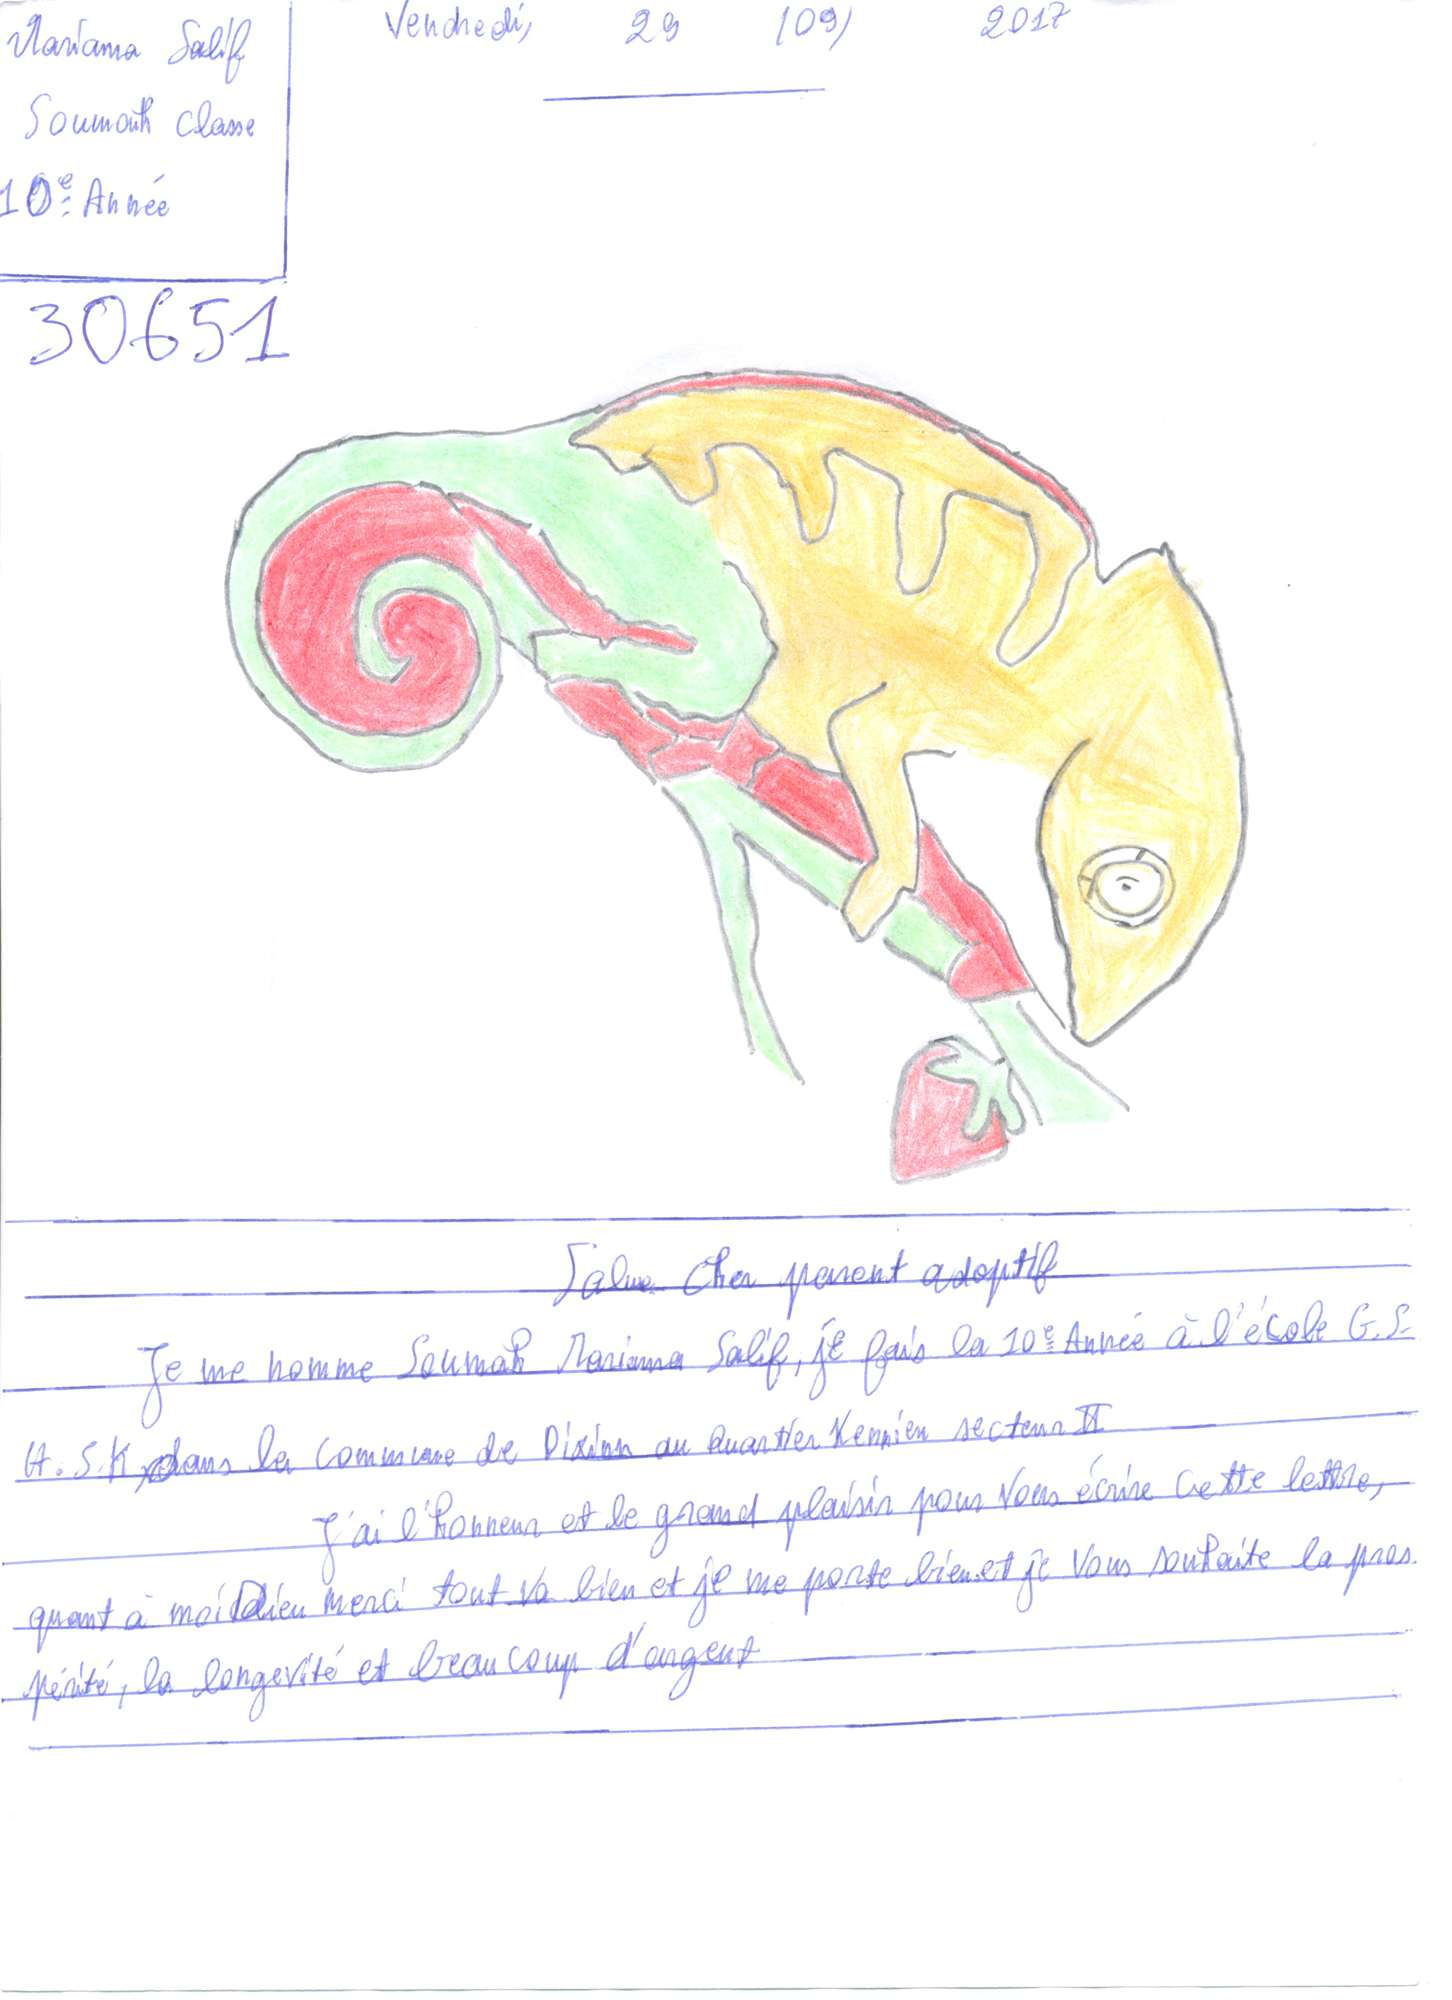 Mariama Salif
Soumah classe
10e Année
Vendredi, 29 /09/ 2017
30651
Salue Cher parent adoptif
Je me nomme Soumah Mariama Salif, je fais la 10e Année à l'école G.S.
H.S.K, dans la commune de Dixinn au quartier Kennien secteur II
J'ai l'honneur et le grand plaisir pour vous écrire cette lettre,
quant à moi Dieu merci tout va bien et je me porte bien et je vous souhaite la pros
périté, la longevité et beaucoup d'argent